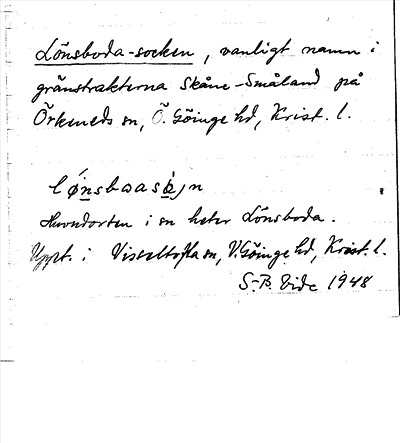 Lönsboda-socken, vanligt namn i
gränstrakterna Skåne-Småland på
Örkeneds sn, Ö. Göinge hd, Krist. l.
lǿnsbɷasȯ̀jn
Huvudorten i sn heter Lönsboda.
Uppt. i Visseltofta sn, V. Göinge hd, Krist. l.
S-B. Vide 1948